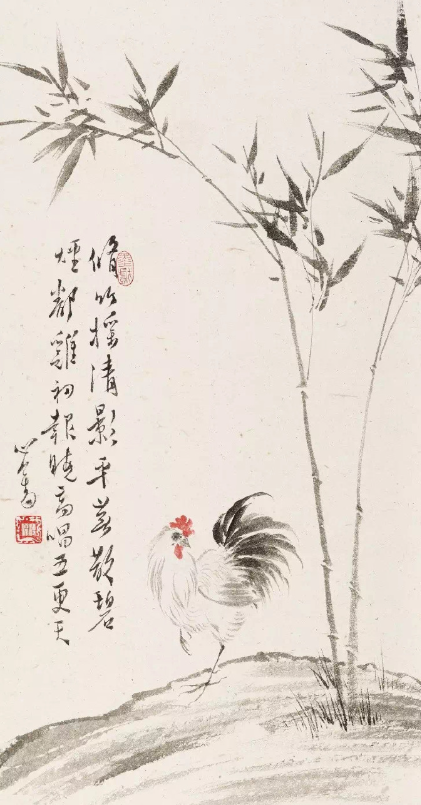 脩竹搖清影平蕪散碧
煙鄰雞初報曉高唱五更天
心畬